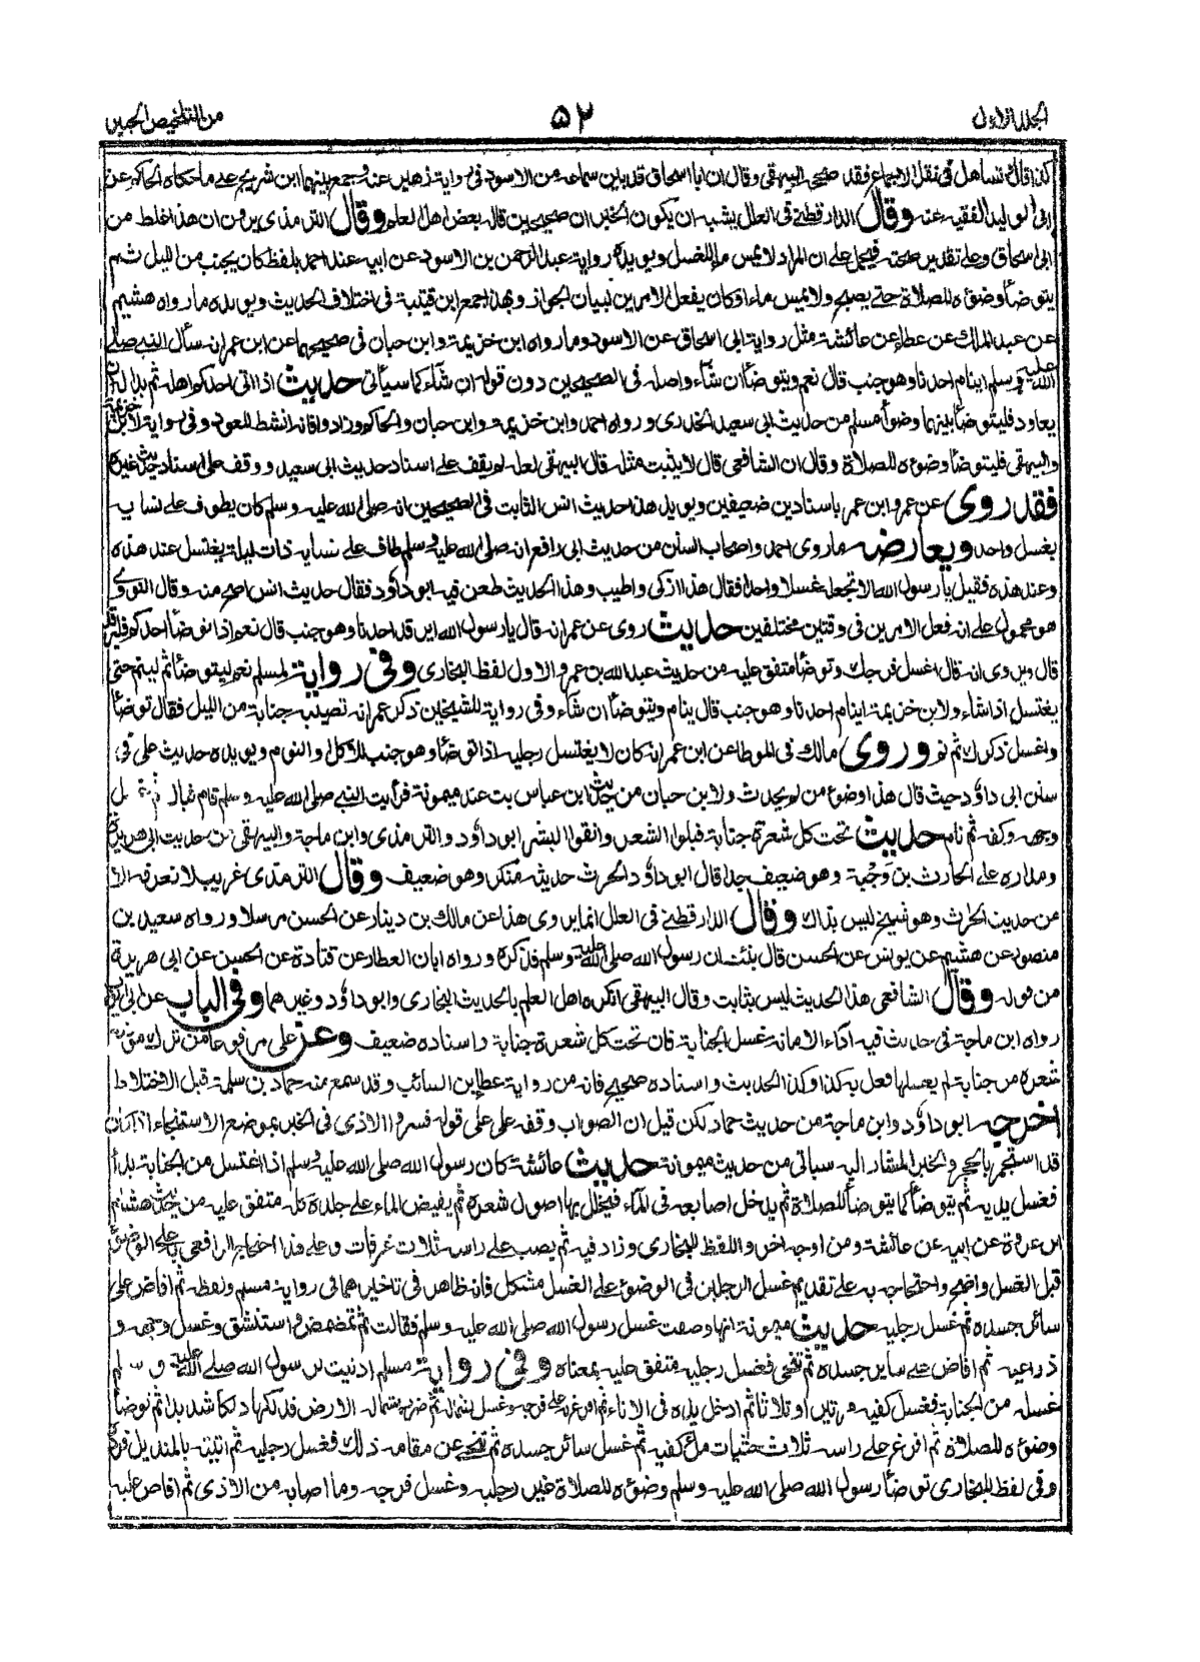 المجلد الاول
۵۲
من التلخيص الحبير
كذا قال وتساهل فى نقل الاجماع فقد صححه البيهقى وقال ان ابا اسحاق قد بين سماعه من الاسود فى رواية زهير عنه وجمع بينهما ابن شريح على ما حكاه الحاكم عن
ابى الوليد الفقيه عنه وقال الدارقطنى فى العلل يشبه ان يكون الخبران صحيحين قاله بعض اهل العلم وقال الترمذى يرون ان هذا غلط من
ابى اسحاق وعلى تقدير صحته فيحمل على ان المراد لا يمس ماء للغسل ويويده رواية عبد الرحمن بن الاسود عن ابيه عند احمد بلفظ كان يجنب من الليل ثم
يتوضأ وضوءه للصلاة حتى يصبح ولا يمس ماء او كان يفعل الامرين لبيان الجواز وبهذا جمع ابن قتيبة فى اختلاف الحديث ويويده ما رواه هشيم
عن عبد الملك عن عطاء عن عائشة مثل رواية ابى اسحاق عن الاسود وما رواه ابن خزيمة وابن حبان فى صحيحيهما عن ابن عمر انه سأل النبى صلى
الله عليه وسلم اينام احدنا وهو جنب قال نعم ويتوضأ ان شاء واصله فى الصحيحين دون قوله ان شاء كما سيأتى حديث اذا اتى احدكم اهله ثم بدا له ان
يعاود فليتوضأ بينهما وضوأ مسلم من حديث ابى سعيد الخدرى ورواه احمد وابن خزيمة وابن حبان والحاكم وزادوا فانه انشط للعود وفى رواية لابن خزيمة
والبيهقى فليتوضأ وضوءه للصلاة وقال ان الشافعى قال لا يثبت مثله قال البيهقى لعله لم يقف على اسناد حديث ابى سعيد ووقف على اسناد حديث غيره
فقد روى عن عمر وابن عمر باسنادين ضعيفين ويويد هذا حديث انس الثابت فى الصحيحين انه صلى الله عليه وسلم كان يطوف على نسايه
بغسل واحد ويعارضه ما روى احمد واصحاب السنن من حديث ابى رافع انه صلى الله عليه وسلم طاف على نسايه ذات ليلة يغتسل عند هذه
وعند هذه فقيل يا رسول الله الا تجعله غسلا واحدا فقال هذا ازكى واطيب وهذا الحديث طعن فيه ابو داؤد فقال حديث انس اصح منه وقال النووى
هو محمول على انه فعل الامرين فى وقتين مختلفين حديث روى عن عمر انه قال يا رسول الله ايرقد احدنا وهو جنب قال نعم اذا توضأ احدكم فليرقد
قال ويروى انه قال اغسل فرجك وتوضأ متفق عليه من حديث عبد الله بن عمر والاول لفظ البخارى وفى رواية لمسلم نعم ليتوضأ ثم لينم حتى
يغتسل اذا شاء ولابن خزيمة اينام احدنا وهو جنب قال ينام ويتوضأ ان شاء وفى رواية للشيخين ذكر عمر انه تصيبه جنابة من الليل فقال توضأ
واغسل ذكرك ثم نم وروى مالك فى الموطا عن ابن عمر انه كان لا يغتسل رجليه اذا توضأ وهو جنب للاكل والنوم ويويده حديث على فى
سنن ابى داؤد حيث قال هذا وضوء من لم يحدث ولابن حبان من حديث ابن عباس بت عند ميمونة فرأيت النبى صلى الله عليه وسلم قام فبال ثم غسل
وجهه وكفيه ثم نام حديث تحت كل شعرة جنابة فبلوا الشعر وانقوا البشر ابو داؤد والترمذى وابن ماجة والبيهقى من حديث ابى هريرة
ومداره على الحارث بن وجية وهو ضعيف جدا قال ابو داؤد الحرث حديثه منكر وهو ضعيف وقال الترمذى غريب لا نعرفه الا
من حديث الحرث وهو شيخ ليس بذاك وقال الدارقطنى فى العلل انما يروى هذا عن مالك بن دينار عن الحسن مرسلا ورواه سعيد بن
منصور عن هشيم عن يونس عن الحسن قال نبئت ان رسول الله صلى الله عليه وسلم فذكره ورواه ابان العطار عن قتادة عن الحسن عن ابى هريرة
من قوله وقال الشافعى هذا الحديث ليس بثابت وقال البيهقى انكره اهل العلم بالحديث البخارى وابو داؤد وغيرهما وفى الباب عن ابى ايوب
رواه ابن ماجة فى حديث فيه آداء الامانة غسل الجنابة فان تحت كل شعرة جنابة واسناده ضعيف وعن على مرفوعا من ترك موضع
شعرة من جنابة لم يغسلها فعل به كذا وكذا الحديث واسناده صحيح فانه من رواية عطا بن السائب وقد سمع منه حماد بن سلمة قبل الاختلاط
اخرجه ابو داؤد وابن ماجة من حديث حماد لكن قيل ان الصواب وقفه على على قوله فسروا الاذى فى الخبر بموضع الاستنجاء اذا كان
قد استجمر بالحجر والخبر المشار اليه سياتى من حديث ميمونة حديث عائشة كان رسول الله صلى الله عليه وسلم اذا اغتسل من الجنابة بدأ
فغسل يديه ثم يتوضأ كما يتوضأ للصلاة ثم يدخل اصابعه فى الماء فيخلل بها اصول شعره ثم يفيض الماء على جلده كله متفق عليه من حديث هشام
بن عروة عن ابيه عن عائشة ومن اوجه اخر واللفظ للبخارى وزاد فيه ثم يصب على راسه ثلاث غرفات وعلى هذا احتجاج الرافعى به على الوضوء
قبل الغسل واضح واحتجاجه به على تقديم غسل الرجلين فى الوضوء على الغسل مشكل فانه ظاهر فى تاخيرهما فى رواية مسلم ولفظه ثم افاض على
سائر جسده ثم غسل رجليه حديث ميمونة انها وصفت غسل رسول الله صلى الله عليه وسلم فقالت ثم تمضمض واستنشق وغسل وجهه و
ذراعيه ثم افاض على ساير جسده ثم تنحى فغسل رجليه متفق عليه بمعناه وفى رواية مسلم ادنيت لرسول الله صلى الله عليه وسلم
غسله من الجنابة فغسل كفيه مرتين او ثلاثا ثم ادخل يده فى الاناء ثم افرغ به على فرجه وغسل بشماله ثم ضرب بشماله الارض فدلكها دلكا شديدا ثم توضأ
وضوءه للصلاة ثم افرغ على راسه ثلاث حثيات ملء كفيه ثم غسل سائر جسده ثم تنحى عن مقامه ذلك فغسل رجليه ثم اتيته بالمنديل فرده
وفى لفظ للبخارى توضأ رسول الله صلى الله عليه وسلم وضوءه للصلاة غير رجليه وغسل فرجه وما اصابه من الاذى ثم افاض عليه